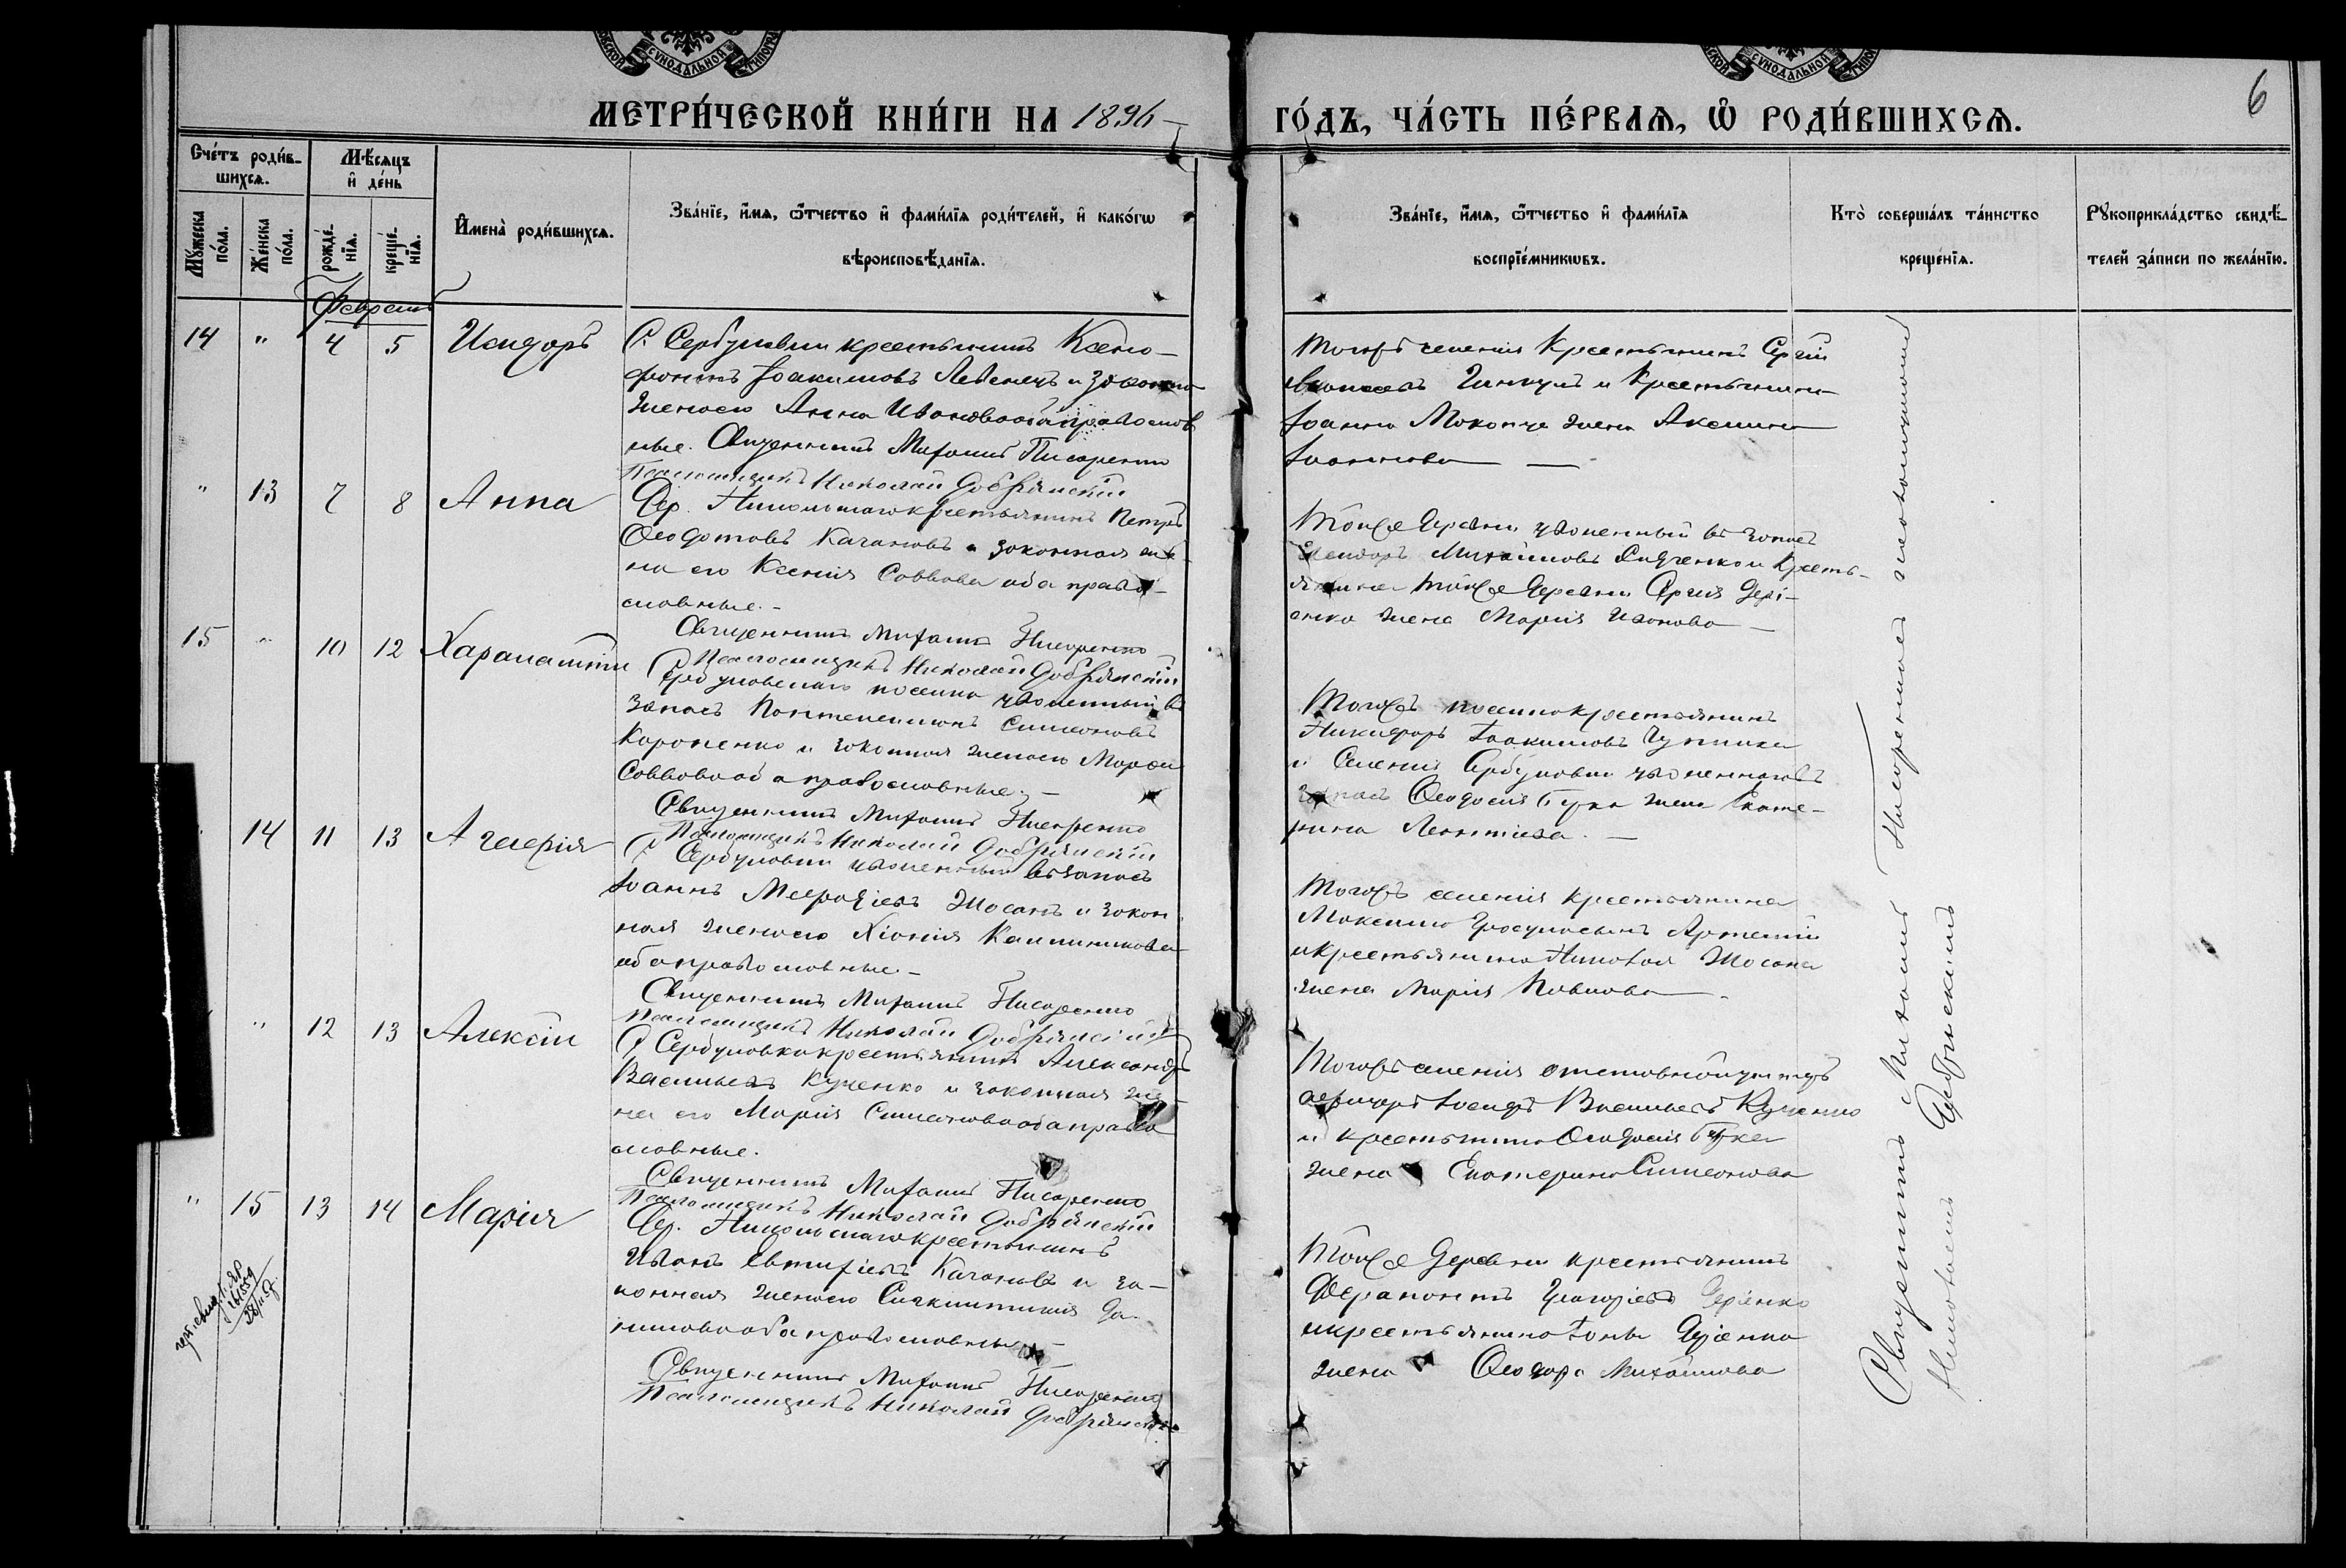 МЕТРИ́ЧЕСКОЙ КНИ́ГИ НА 1896
ГО́ДЪ, ЧА́СТЬ ПЕ́РВАЯ, Ѡ РОДИ́ВШИХСЯ.
6
Сче́тъ роди́в-
шихся.
Мѣ́сяцъ
и де́нь
Му́жеска
по́ла.
Же́нска
по́ла.
рожде́-
нїя.
креще́-
нїя.
Имена̀ роди́вшихся.
Зва́нїе, и́мя, ѻ́тчество и фами́лїя роди́телей, и како́гѡ
вѣроисповѣ́данїя.
Зва́нїе, и́мя, ѻ́тчество и фами́лїя
воспрїе́мникѡвъ.
Кто̀ соверша́лъ та́инство
креще́нїя.
Рꙋкоприкла́дство свидѣ́-
телей за́писи по жела́нїю.
Февраль
14 " 4 5 Исидоръ
С. Сербуловки крестьянинъ Ксено-
фонтъ Іоакимовъ Лебенецъ и законна
женаего Анна Ивановаобаправослав
ные. Священникъ Митрофанъ Писаренко
Псаломщикъ Николай Добрянскій
Тогожъ селенія Крестьянинъ Сергій
и Крестьянина
Іоанна жена Аксинія
Іоаннова
" 13 7 8 Анна
Дер. Никольскагокрестьянинъ Петръ
Ѳеодотовъ Качановъ и законная же-
на его Ксенія Саввова оба право-
славные.-
Священникъ Писаренко
Псаломщикъ Николай Добрянскій
Тойже деревни уволенный въ запасъ
Михаиловъ Дидченко и Кресть-
янина тойже деревни Сергія Дері-
енко жена Марія Иванова
15 " 10 12 Харалампій
Сербуловскаго поселка уволенный въ
запасъ Пантелеимонъ Симеоновъ
Короненко и законная женаего Марѳа
Саввоваоба православные. -
Священникъ Писаренко
Псаломщикъ Николай Добрянскій
Тогожъ поселкакрестьянинъ
Никифоръ Іоакимовъ
и Селенія Сербуловки уволеннаговъ
запасъ Ѳеодосія Бука жена Екате-
рина Леонтіева. -
14 11 13 Агаѳія
С. Сербуловки уволенный възапасъ
Іоаннъ Меѳодіевъ Жосанъ и закон
ная женаего Хіонія Каллиникова
обаправославные.-
Священникъ Писаренко
Псаломщикъ Николай Добрянскій
Тогожъ селенія крестьянина
Максима сынъ Артемій
икрестьянина Николая Жосана
жена Марія Павлова
" 12 13 Алексій
С. Сербуловкикрестьянинъ Александръ
Васильевъ Куценко и законная же-
на его Марія Симеоноваобаправо
славные.
Священникъ Писаренко
Псаломщикъ Николай Добрянскій
Тогожъселенія отставнойунтеръ
офицеръ Іосифъ Васильевъ Куценко
и крестьянинаѲеодосія Бука
жена Екатерина Симеонова
" 15 13 14 Марія
Дер. Никольскагокрестьянинъ
Иванъ Евтихіевъ Качановъ и за-
конная женаего Синклитикія Да-
ниловаобаправославные. -
Священникъ Писаренко
Псаломщикъ Николай Добрянскій
Тойже Деревни крестьянинъ
Ферапонтъ Григорьевъ Деріенко
икрестьянинаІоны Деріенко
жена Ѳеодора Михайлова
Священникъ Писаренко съ псаломщикомъ
Николаемъ Добрянскимъ